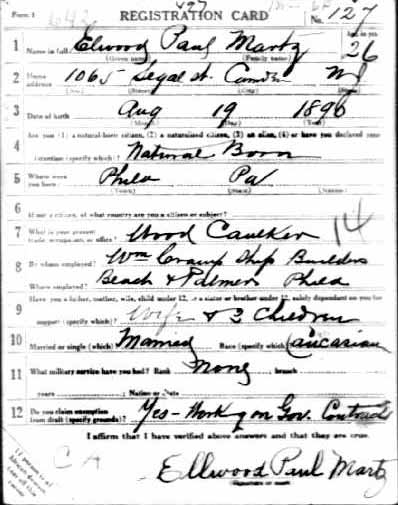 Form 1 REGISTRATION CARD No. 127
427
1 Name in full Elwood Paul Martz Age, in yrs. 26
(Given name) (Family name)
2 Home address 1065 Segal st. Camden N J
(No.) (Street) (City) (State)
3 Date of birth Aug 19 1890
Are you (1) a natural-born citizen, (2) a naturalized citizen, (3) an alien, (4) or have you declared your
4 intention (specify which)? Natural Born
5 Where were you born? Phila Pa
(Town) (State) (Nation)
6 If not a citizen, of what country are you a citizen or subject?
7 What is your present trade, occupation, or office? Wood Caulker 14
8 By whom employed? Wm Cramp Ship Builders
Where employed? Beach & Palmer Phila
Have you a father, mother, wife, child under 12, or a sister or brother under 12, solely dependent on you for
9 support (specify which)? Wife & 3 Children
10 Married or single (which)? Married Race (specify which)? Caucasian
11 What military service have you had? Rank None ; branch
years ; Nation or State
12 Do you claim exemption from draft (specify grounds)? Yes - Working on Gov. Contracts
I affirm that I have verified above answers and that they are true.
Ellwood Paul Martz